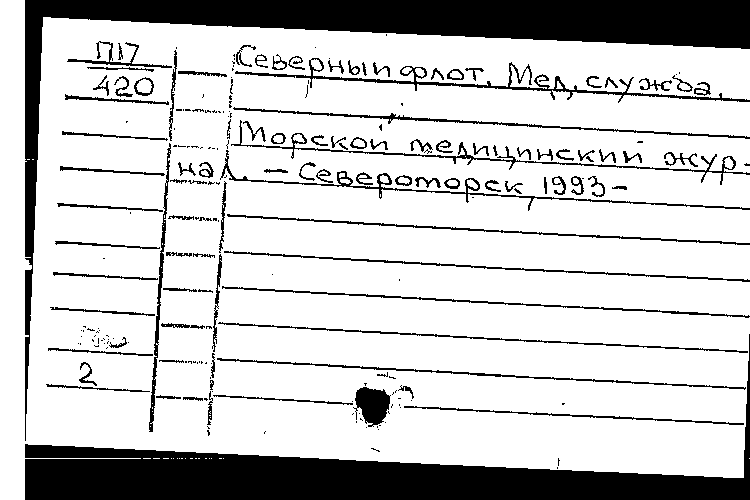 П17
420
Северный флот. Мед. служба.
Морской медицинский жур-
нал. – Североморск, 1993-
2